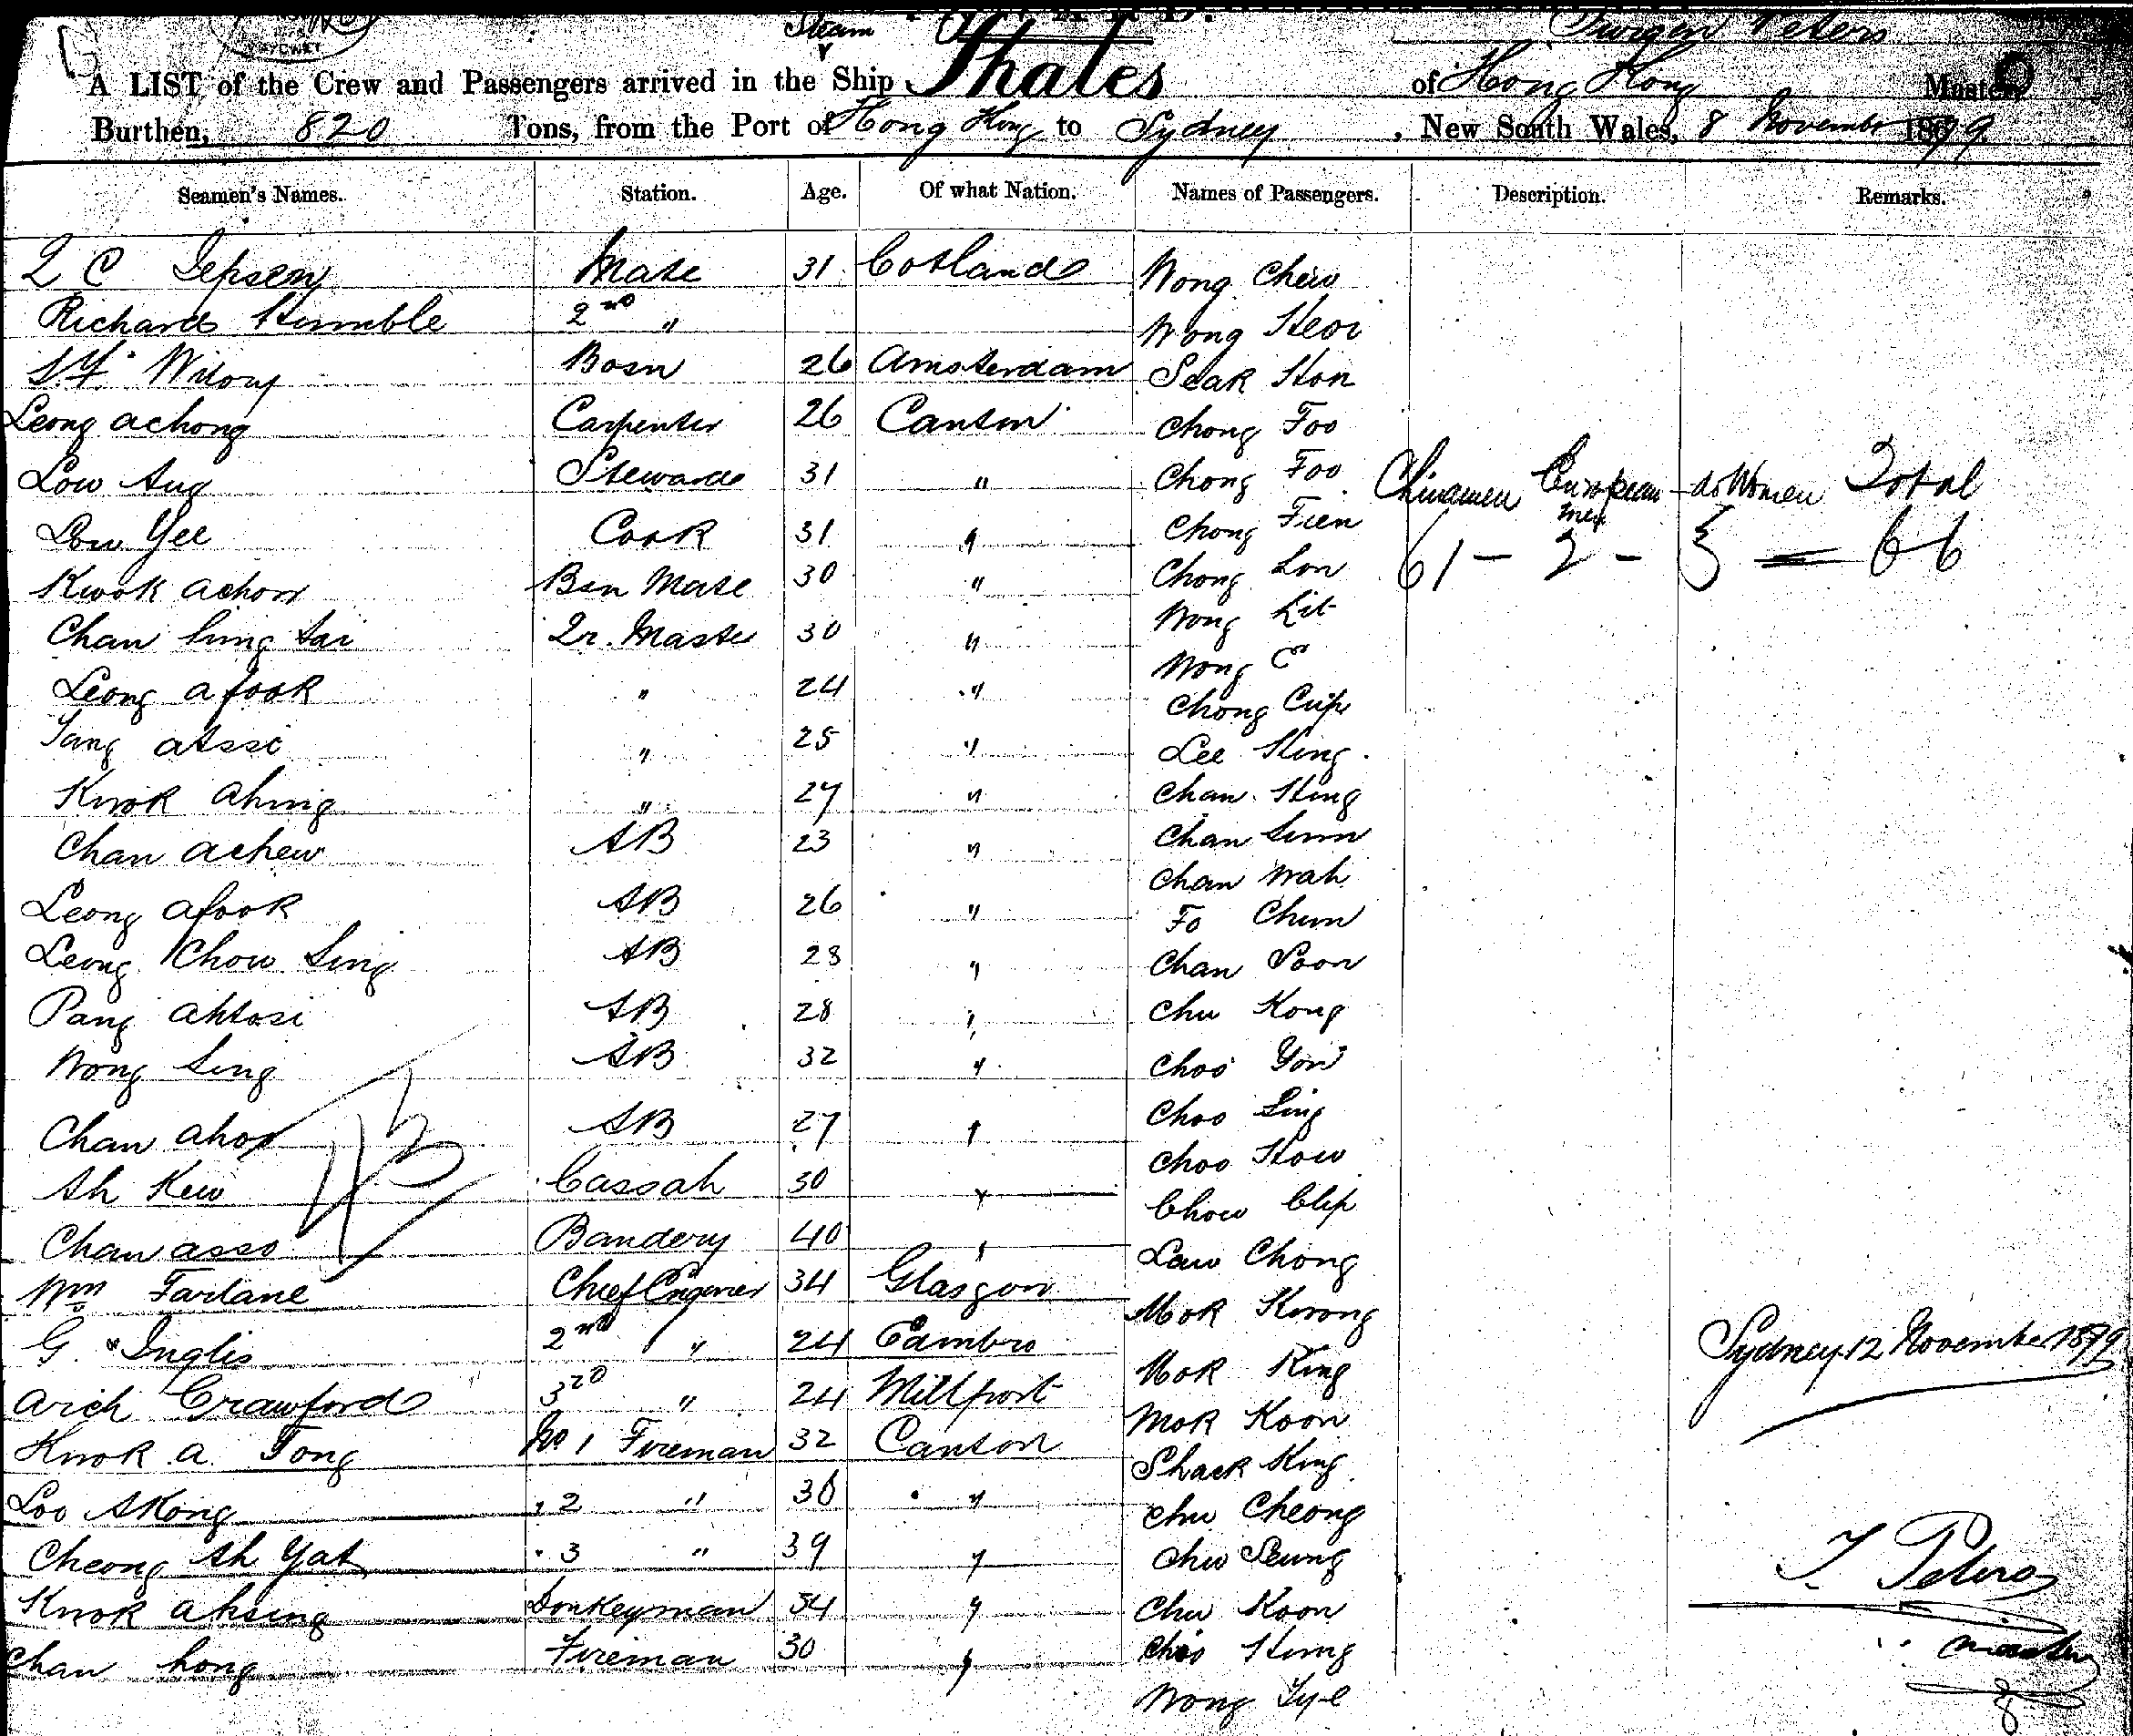 SYDNEY
Steam
Jurgen Peters
A LIST of the Crew and Passengers arrived in the Ship Thales of Hong Kong Master
Burthen, 820 Tons, from the Port of Hong Kong to Sydney, New South Wales, 8 November 1879
Seamen's Names. Station. Age. Of what Nation. Names of Passengers. Description. Remarks.
Mate 31 Wong Chew
Richard Humble 2nd "
Wong
Bosn 26 Amsterdam
Leong achong Carpenter 26 Canton Chong Foo
Steward 31 " Chong Foo
Chinamen European men do Women Total
Low Yee Cook 31 " Chong Tien
61 - 2 - 3 = 66
Kwok achow Bsn Mate 30 " Chong
Chan Sing tai Qr. Master 30 " Wong
Wong
Leong afook " 24 " Chong
" 25 " Lee Hing
Kwok ahing " 27 " Chan Hing
Chan achew AB 23 " Chan
Chan Wah
Leong afook AB 26 " Fo Chun
Leong Chow Sing AB 28 " Chan Soon
Pang AB 28 " Chu Kong
Wong Sing AB 32 " Choo
Chan ahoy AB 27 " Choo Sing
Choo How
Ah Kew Cassah 30 " Chow
Chan asso Bandery 40 " Law Chong
Wm Farlane Chief Engineer 34 Glasgow Mok Kwong
G Inglis 2nd " 24 Mok King
Sydney 12 November 1879
Arich Crawford 3rd " 24 Millport Mok Koon
Kwok a Tong No 1 Fireman 32 Canton Shack King
Loo Akong " 2 " 30 " Chu Cheong
Cheong Ah Yat " 3 " 39 " Chu Seung
J. Peters
Kwok ahsing Donkeyman 34 " Chu Koon
Chan hong Fireman 30 " Choo Hung
Master
Wong Tye